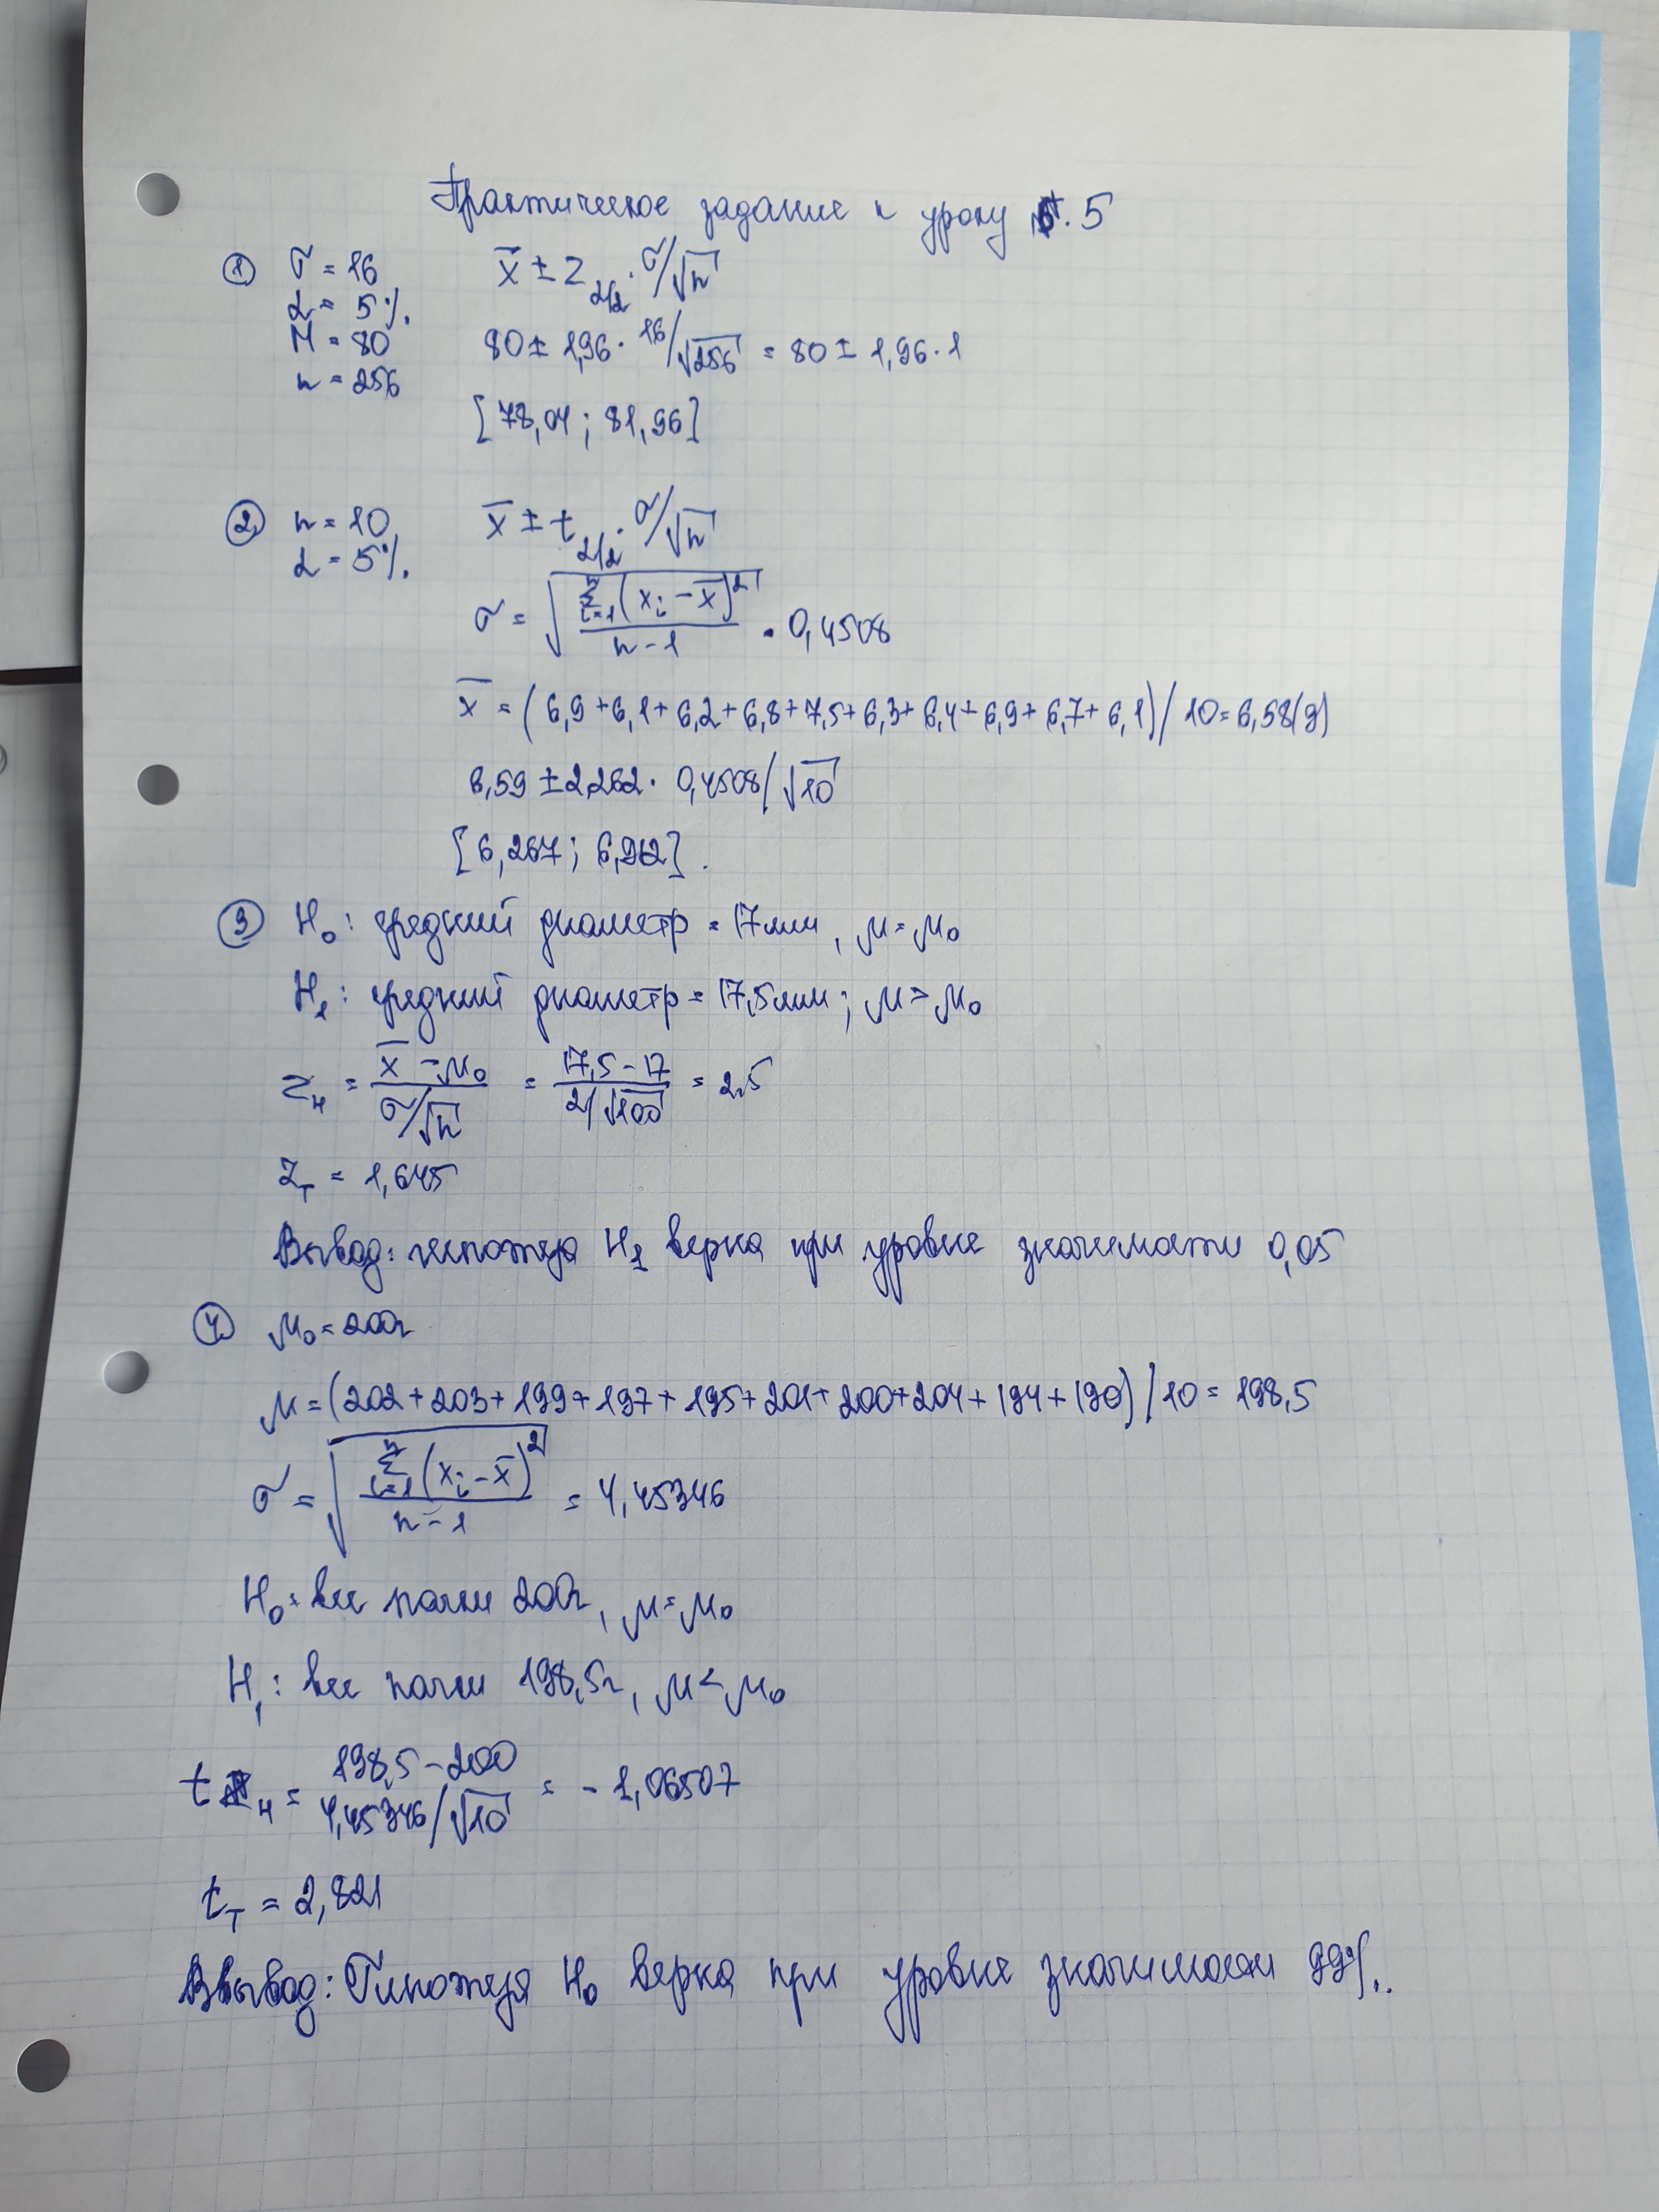 Практическое задание к уроку 5
① σ = 16 x̄ ± Z α/2 · σ/√n
α = 5%.
M = 80 80 ± 1,96 · 16/√256 = 80 ± 1,96 · 1
n = 256
[78,04 ; 81,96]
② n = 10 x̄ ± t α/2 · σ/√n
α = 5%.
σ = √(Σ i=1 n (xi - x̄)² / n-1) = 0,4508
x̄ = (6,9+6,1+6,2+6,8+7,5+6,3+6,4+6,9+6,7+6,1)/10=6,58(9)
6,59 ± 2,262 · 0,4508/√10
[6,267 ; 6,912].
③ H₀: средний диаметр = 17мм, μ = μ₀
H₁: средний диаметр = 17,5мм; μ > μ₀
Zн = x̄ - μ₀ / σ/√n = 17,5 - 17 / 2/√100 = 2,5
Zт = 1,645
Вывод: гипотеза H₁ верна при уровне значимости 0,05
④ μ₀ = 200г
μ = (202+203+199+197+195+201+200+204+194+190)/10 = 198,5
σ = √(Σ i=1 n (xi - x̄)² / n-1) = 4,45346
H₀: все пачки 200г, μ = μ₀
H₁: все пачки 198,5г, μ < μ₀
tн = 198,5 - 200 / 4,45346/√10 = - 1,06507
tт = 2,821
Вывод: Гипотеза H₀ верна при уровне значимости 99%.